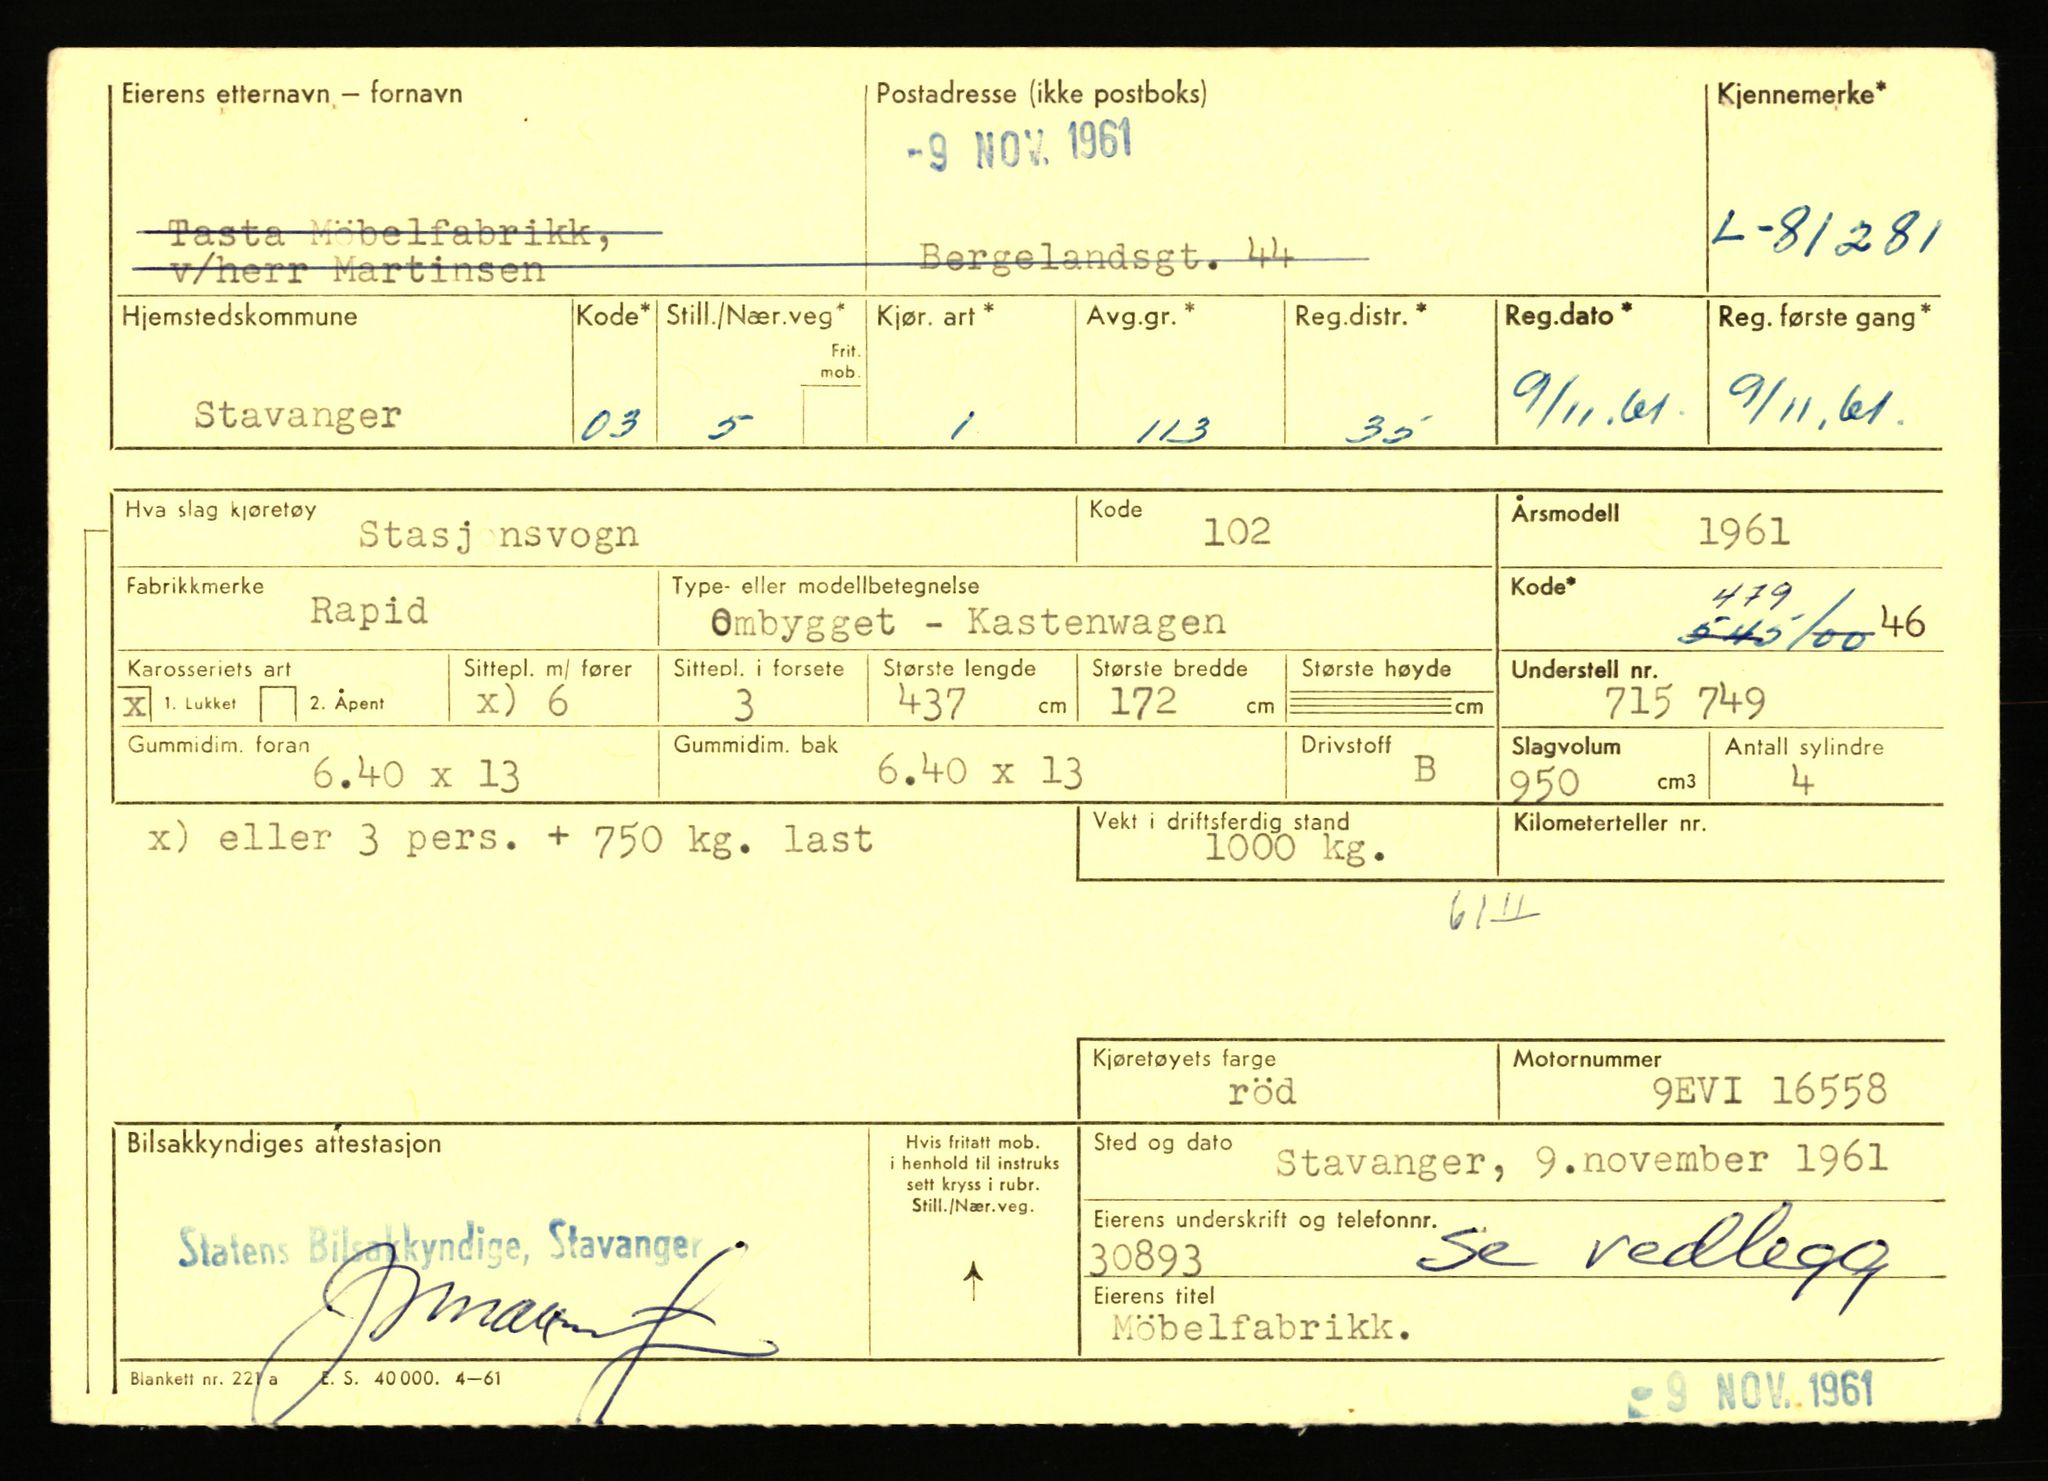 Eierens etternavn – fornavn
Postadresse (ikke postboks)
Kjennemerke*
-9 NOV. 1961
Tasta Möbelfabrikk,
v/herr Martinsen
Bergelandsgt. 44
L-81281
Hjemstedskommune
Kode*
Still./Nær.veg*
Frit. mob.
Kjør. art*
Avg.gr.*
Reg.distr.*
Reg.dato*
Reg. første gang*
Stavanger
03
5
1
113
35
9/11.61.
9/11.61.
Hva slag kjøretøy
Stasjonsvogn
Kode
102
Årsmodell
1961
Fabrikkmerke
Rapid
Type- eller modellbetegnelse
Ombygget - Kastenwagen
Kode*
479
545/00 46
Karosseriets art
X 1. Lukket 2. Åpent
Sittepl. m/ fører
x) 6
Sittepl. i forsete
3
Største lengde
437 cm
Største bredde
172 cm
Største høyde
cm
Understell nr.
715 749
Gummidim. foran
6.40 x 13
Gummidim. bak
6.40 x 13
Drivstoff
B
Slagvolum
950 cm3
Antall sylindre
4
x) eller 3 pers. + 750 kg. last
Vekt i driftsferdig stand
1000 kg.
Kilometerteller nr.
61 II
Kjøretøyets farge
röd
Motornummer
9EVI 16558
Bilsakkyndiges attestasjon
Statens Bilsakkyndige, Stavanger
Hvis fritatt mob.
i henhold til instruks
sett kryss i rubr.
Still./Nær.veg.
Sted og dato
Stavanger, 9.november 1961
Eierens underskrift og telefonnr.
30893 se vedlegg
Eierens titel
Möbelfabrikk.
Blankett nr. 221 a E. S. 40 000. 4–61
-9 NOV. 1961